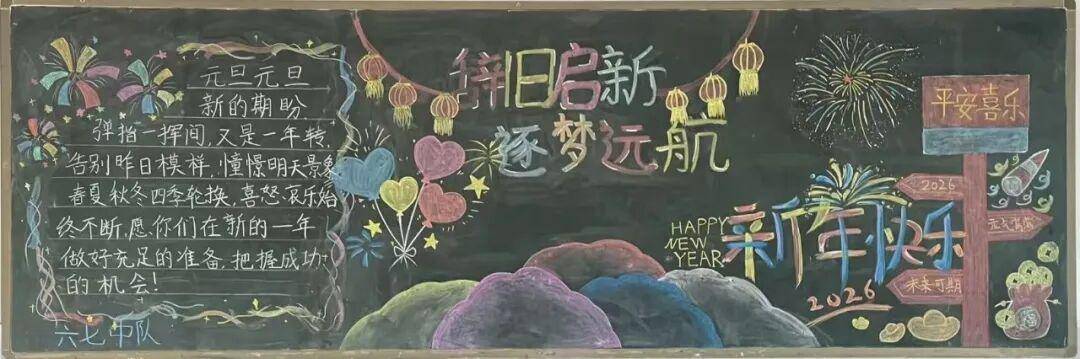 元旦元旦
新的期盼
弹指一挥间,又是一年转,
告别昨日模样,憧憬明天景象
春夏秋冬四季轮换,喜怒哀乐始
终不断,愿你们在新的一年
做好充足的准备,把握成功
的机会!
六七中队
辞旧启新
逐梦远航
HAPPY
NEW
YEAR
新年快乐
2026
平安喜乐
2026
元气满满
未来可期
福